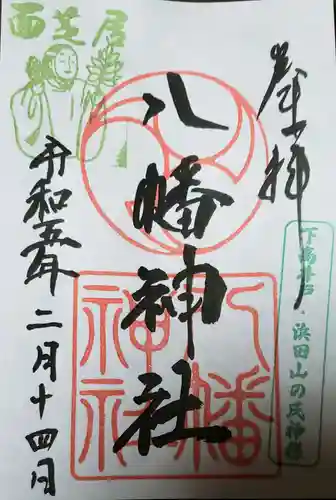 奉拝
下高井戸・浜田山の氏神様
八幡神社
八幡神社
面芝居
令和五年
二月十四日